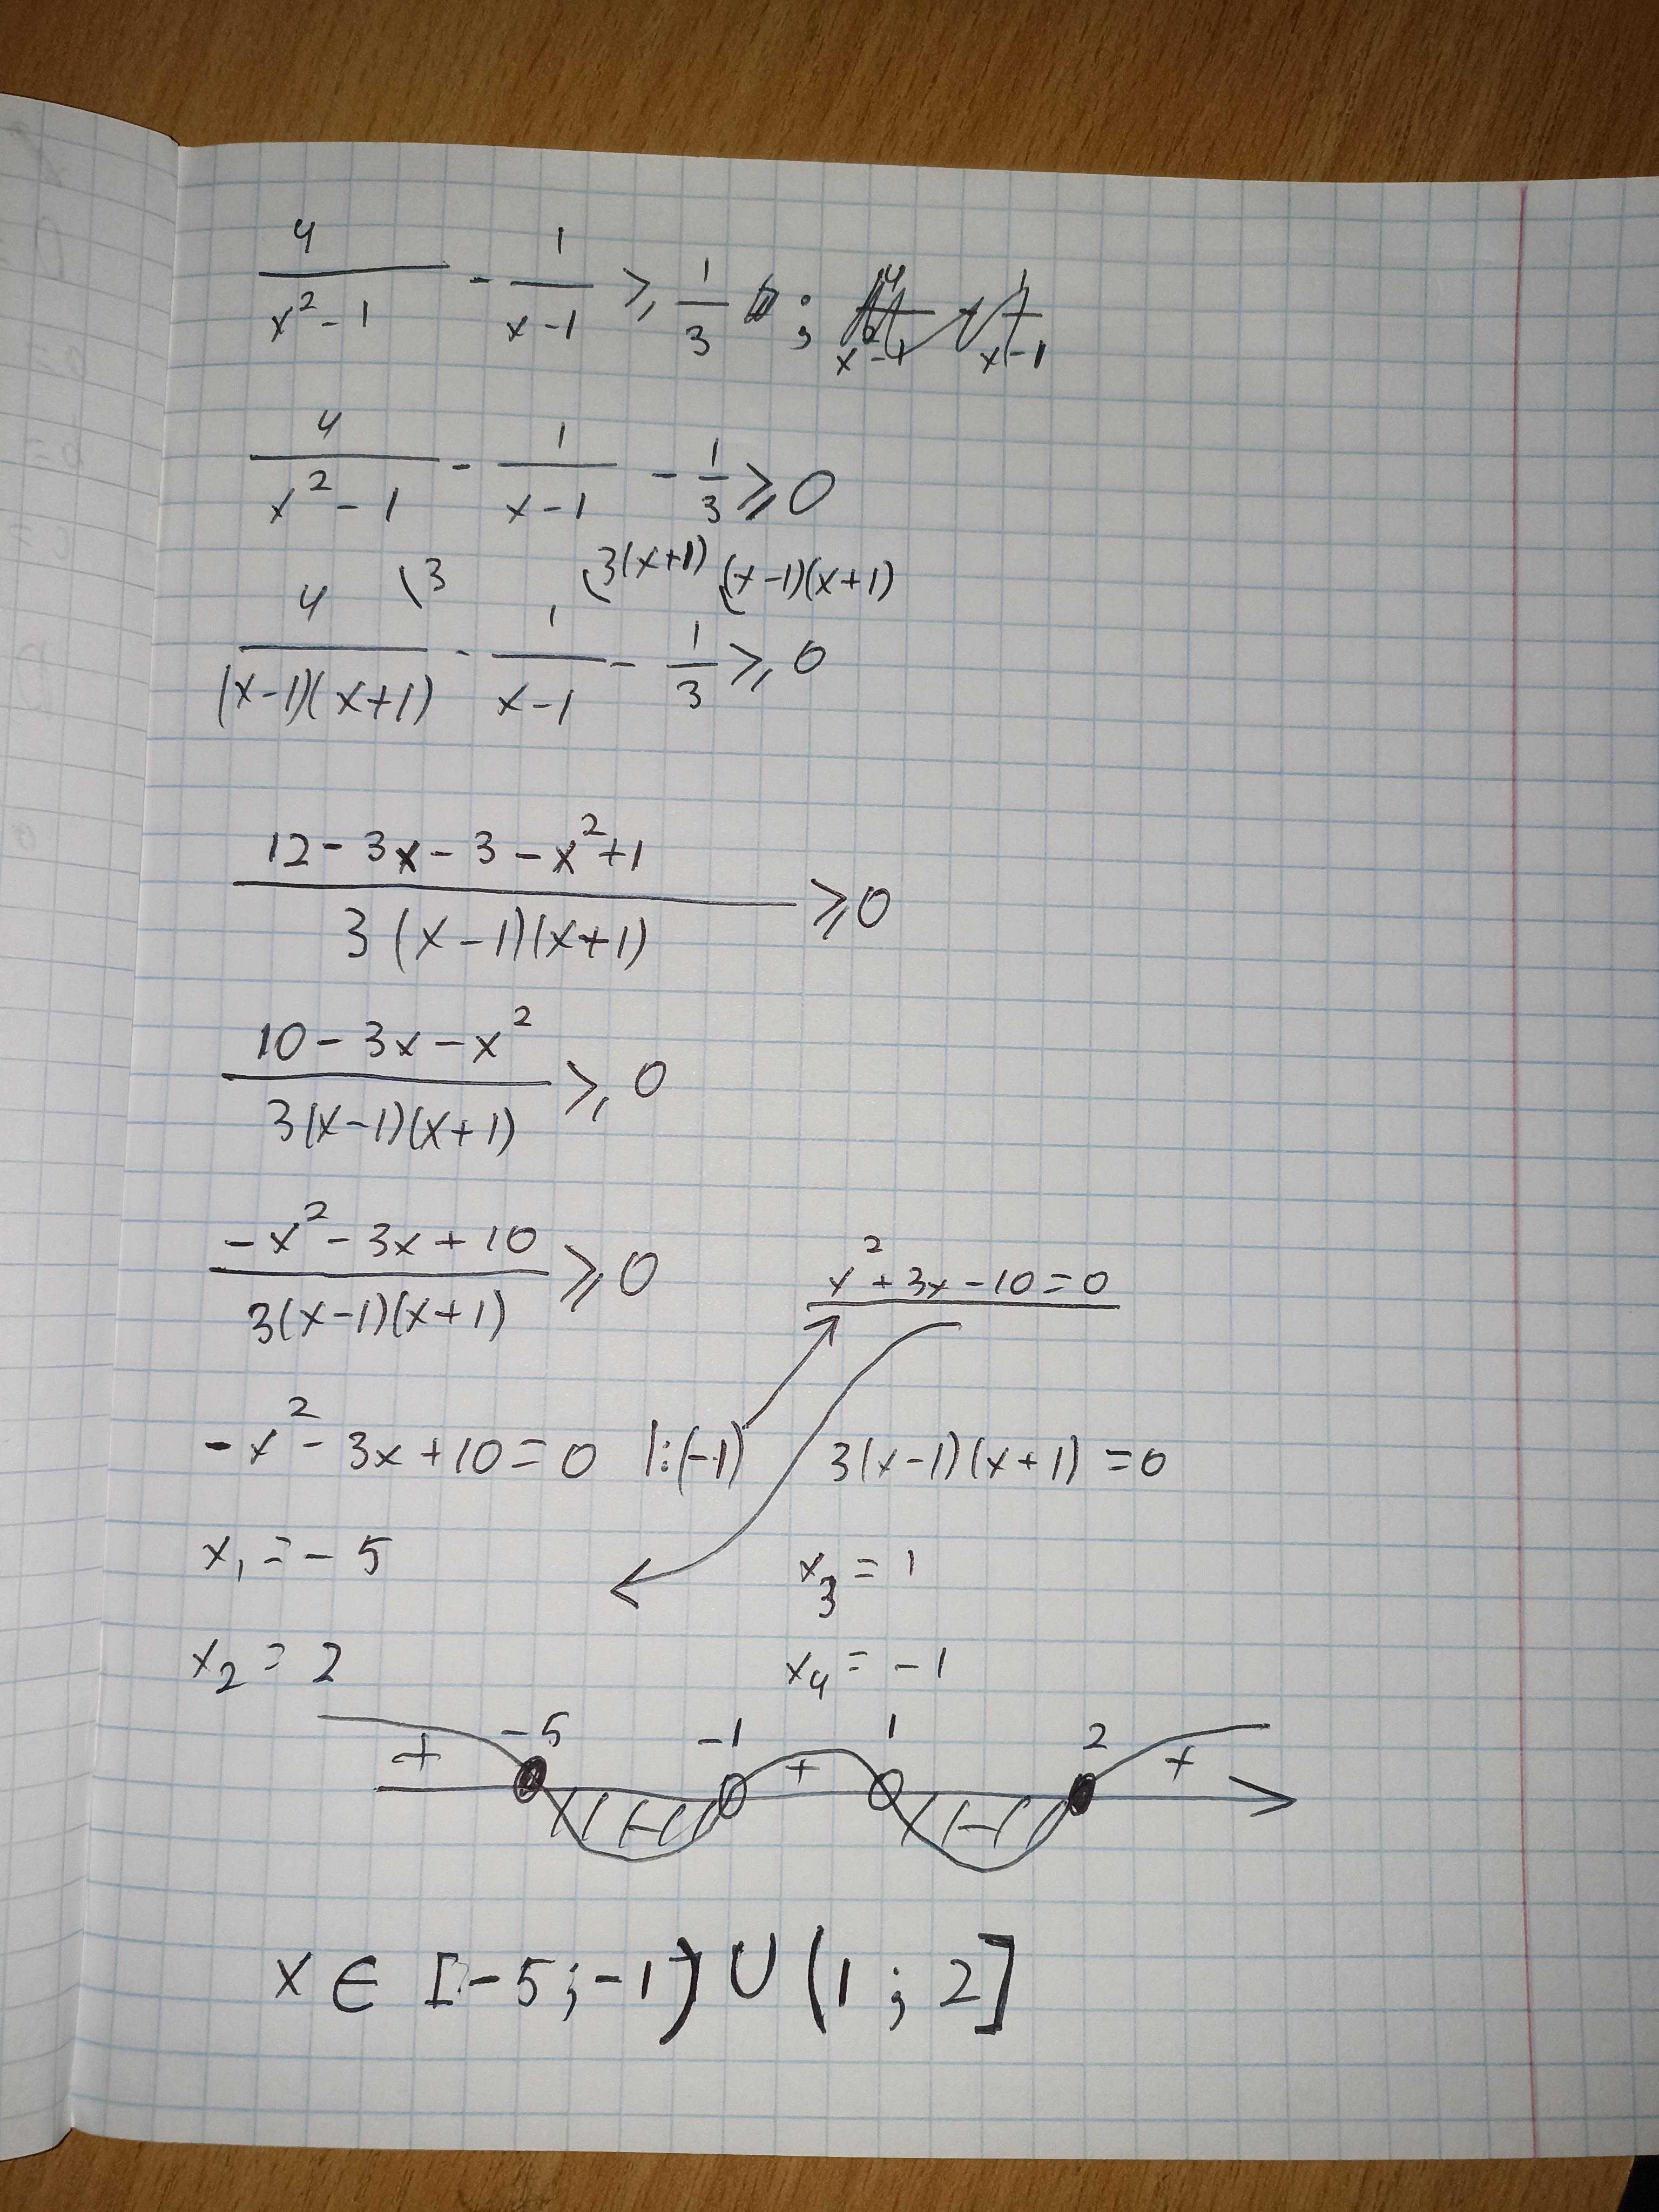 4/(x²-1) - 1/(x-1) ⩾ 1/3 ;
4/(x²-1) - 1/(x-1) - 1/3 ⩾ 0
4\3/((x-1)(x+1)) - 1\3(x+1)/(x-1) - 1\(x-1)(x+1)/3 ⩾ 0
(12-3x-3-x²+1)/(3(x-1)(x+1)) ⩾ 0
(10-3x-x²)/(3(x-1)(x+1)) ⩾ 0
(-x²-3x+10)/(3(x-1)(x+1)) ⩾ 0 x²+3x-10=0
-x²-3x+10=0 |:(-1) 3(x-1)(x+1)=0
x₁=-5 x₃=1
x₂=2 x₄=-1
-5 -1 1 2
+ - + - +
x∈[-5;-1)∪(1;2]